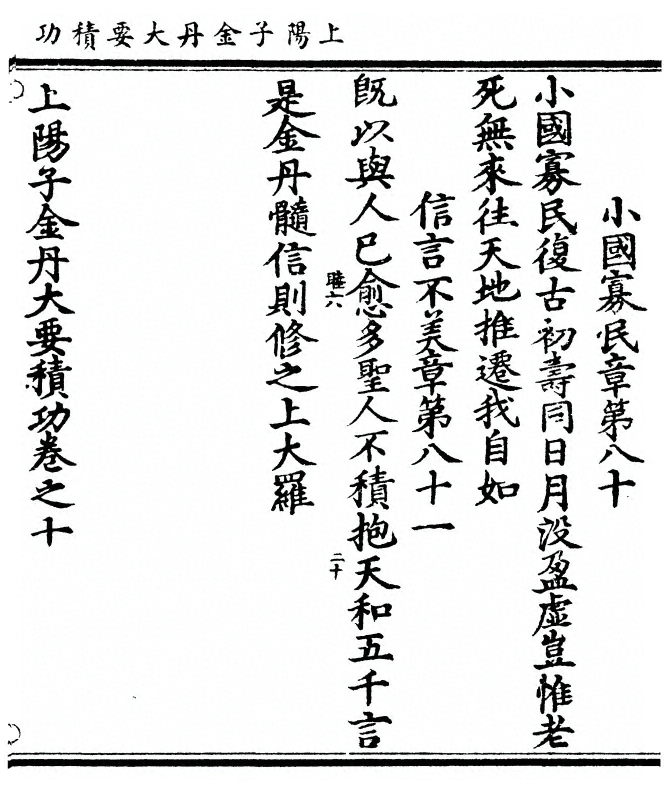 上陽子金丹大要積功
小國寡民章第八十
小國寡民復古初壽同日月没盈虛豈惟老
死無來往天地推遷我自如
信言不美章第八十一
既以與人已愈多聖人不積抱天和五千言
睦六
二十
是金丹髓信則修之上大羅
上陽子金丹大要積功卷之十